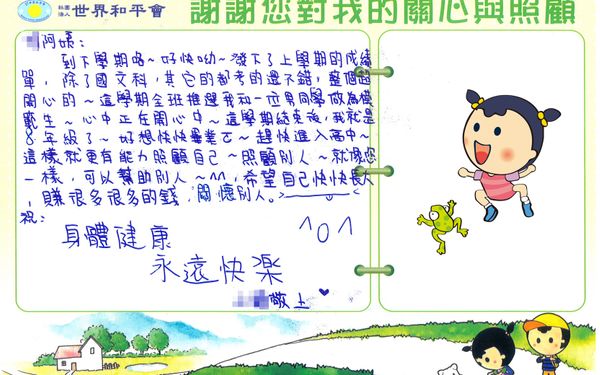 社團法人 世界和平會
謝謝您對我的關心與照顧
阿姨：
到下學期咯～好快呦～發下了上學期的成績
單，除了國文科，其它的都考的還不錯，整個超
開心的～這學期全班推選我和一位男同學做為模
範生～心中正在開心中～這學期結束後，我就是
8年級了～好想快快畢業ㄛ～趕快進入高中～
這樣就更有能力照顧自己～照顧別人～就像您
一樣，可以幫助別人～^^，希望自己快快長大
，賺很多很多的錢，關懷別人。
祝：
身體健康 ^o^
永遠快樂
敬上